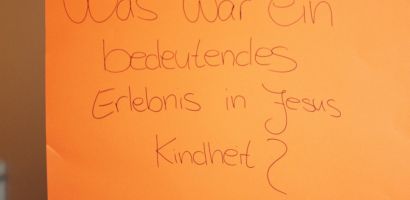 Was war ein
bedeutendes
Erlebnis in Jesus
Kindheit?